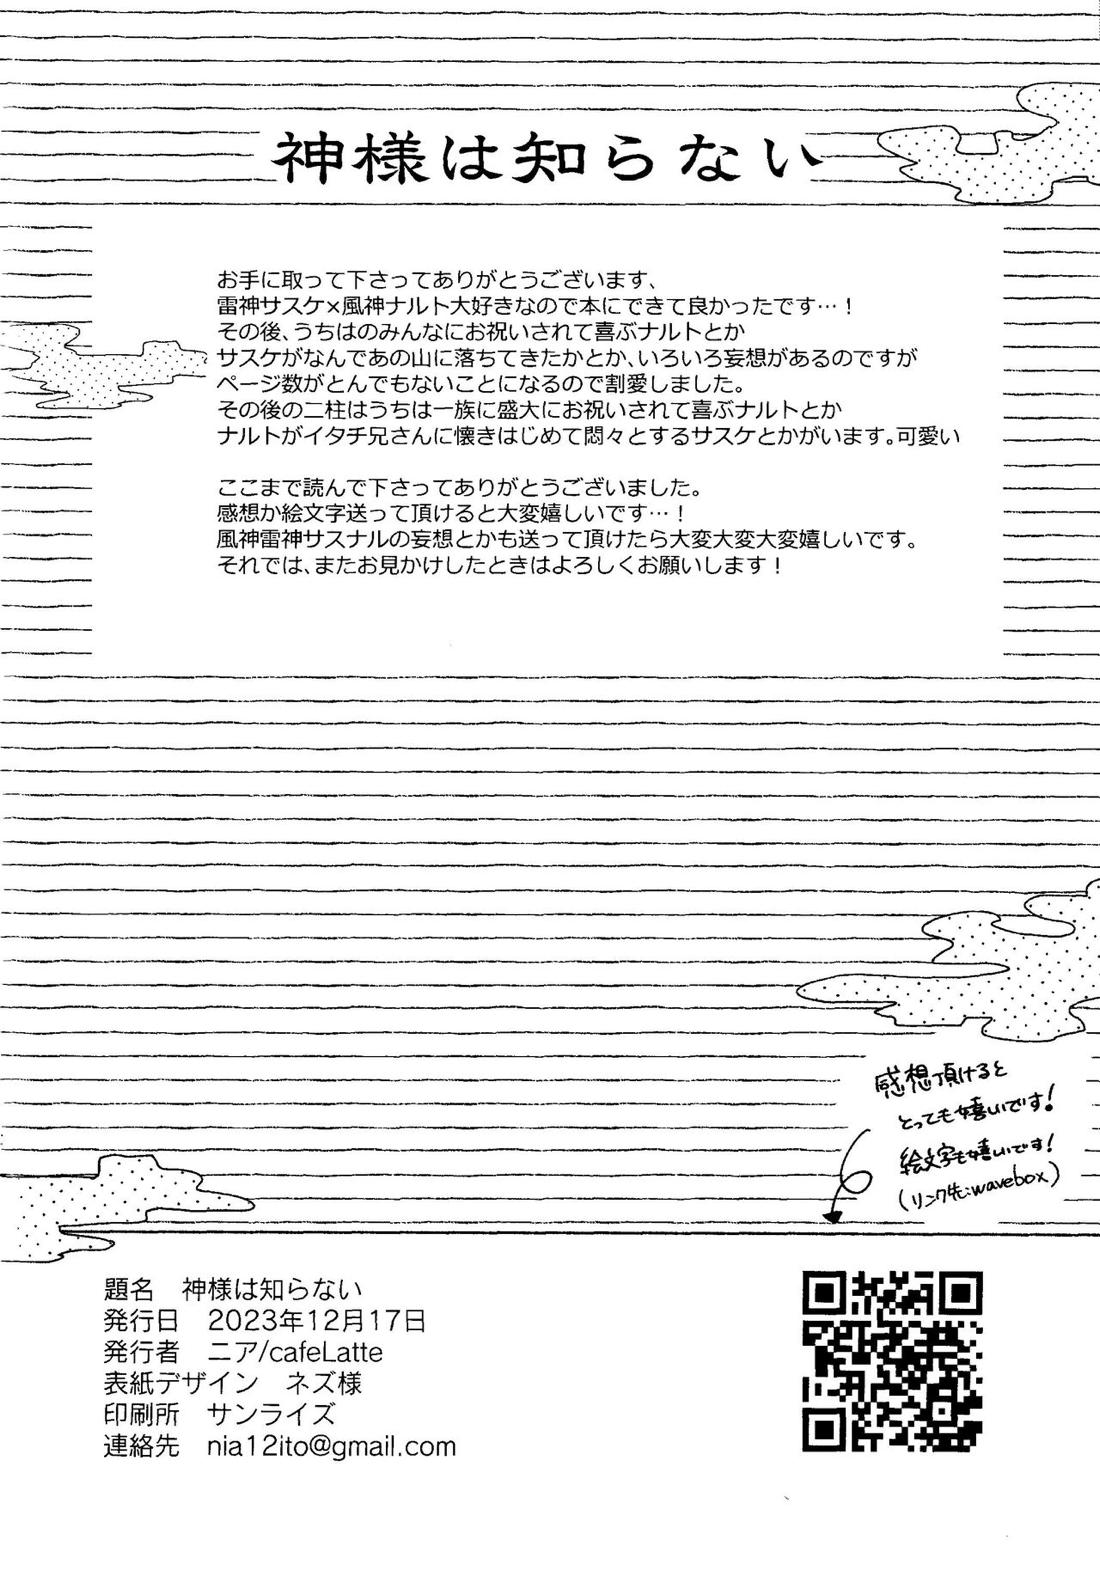 神様は知らない
お手に取って下さってありがとうございます、
雷神サスケ×風神ナルト大好きなので本にできて良かったです…！
その後、うちはのみんなにお祝いされて喜ぶナルトとか
サスケがなんであの山に落ちてきたかとか、いろいろ妄想があるのですが
ページ数がとんでもないことになるので割愛しました。
その後の二柱はうちは一族に盛大にお祝いされて喜ぶナルトとか
ナルトがイタチ兄さんに懐きはじめて悶々とするサスケとかがいます。可愛い
ここまで読んで下さってありがとうございました。
感想か絵文字送って頂けると大変嬉しいです…！
風神雷神サスナルの妄想とかも送って頂けたら大変大変大変嬉しいです。
それでは、またお見かけしたときはよろしくお願いします！
感想頂けると
とっても嬉しいです！
絵文字も嬉しいです！
(リンク先:wavebox)
題名　神様は知らない
発行日　2023年12月17日
発行者　ニア/cafeLatte
表紙デザイン　ネズ様
印刷所　サンライズ
連絡先　nia12ito@gmail.com